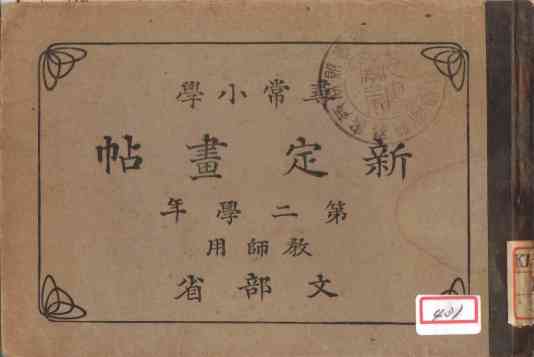 尋常小學
新定畫帖
第二學年
教師用
文部省
401